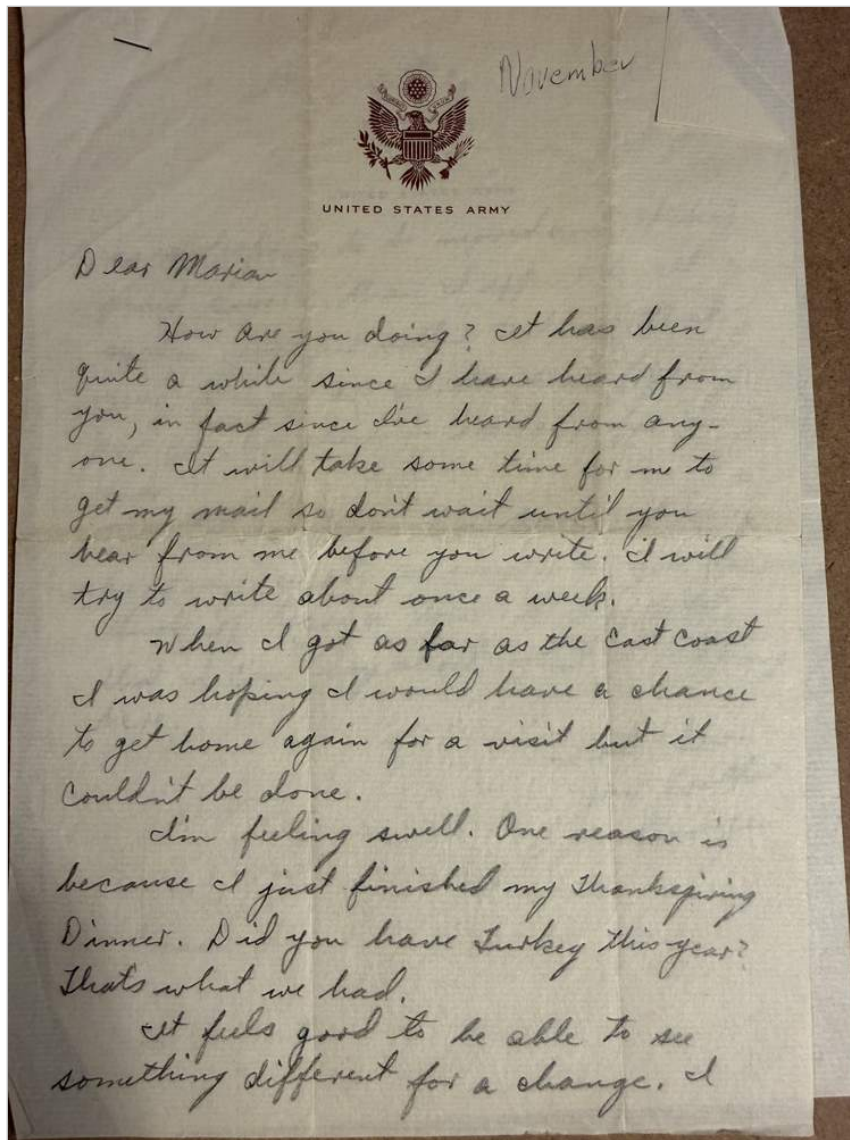 November
UNITED STATES ARMY
Dear Marian
How are you doing? It has been
quite a while since I have heard from
you, in fact since I've heard from any-
one. It will take some time for me to
get my mail so don't wait until you
hear from me before you write. I will
try to write about once a week.
When I got as far as the East Coast
I was hoping I would have a chance
to get home again for a visit but it
couldn't be done.
I'm feeling swell. One reason is
because I just finished my Thanksgiving
Dinner. Did you have Turkey this year?
Thats what we had.
It feels good to be able to see
something different for a change. I